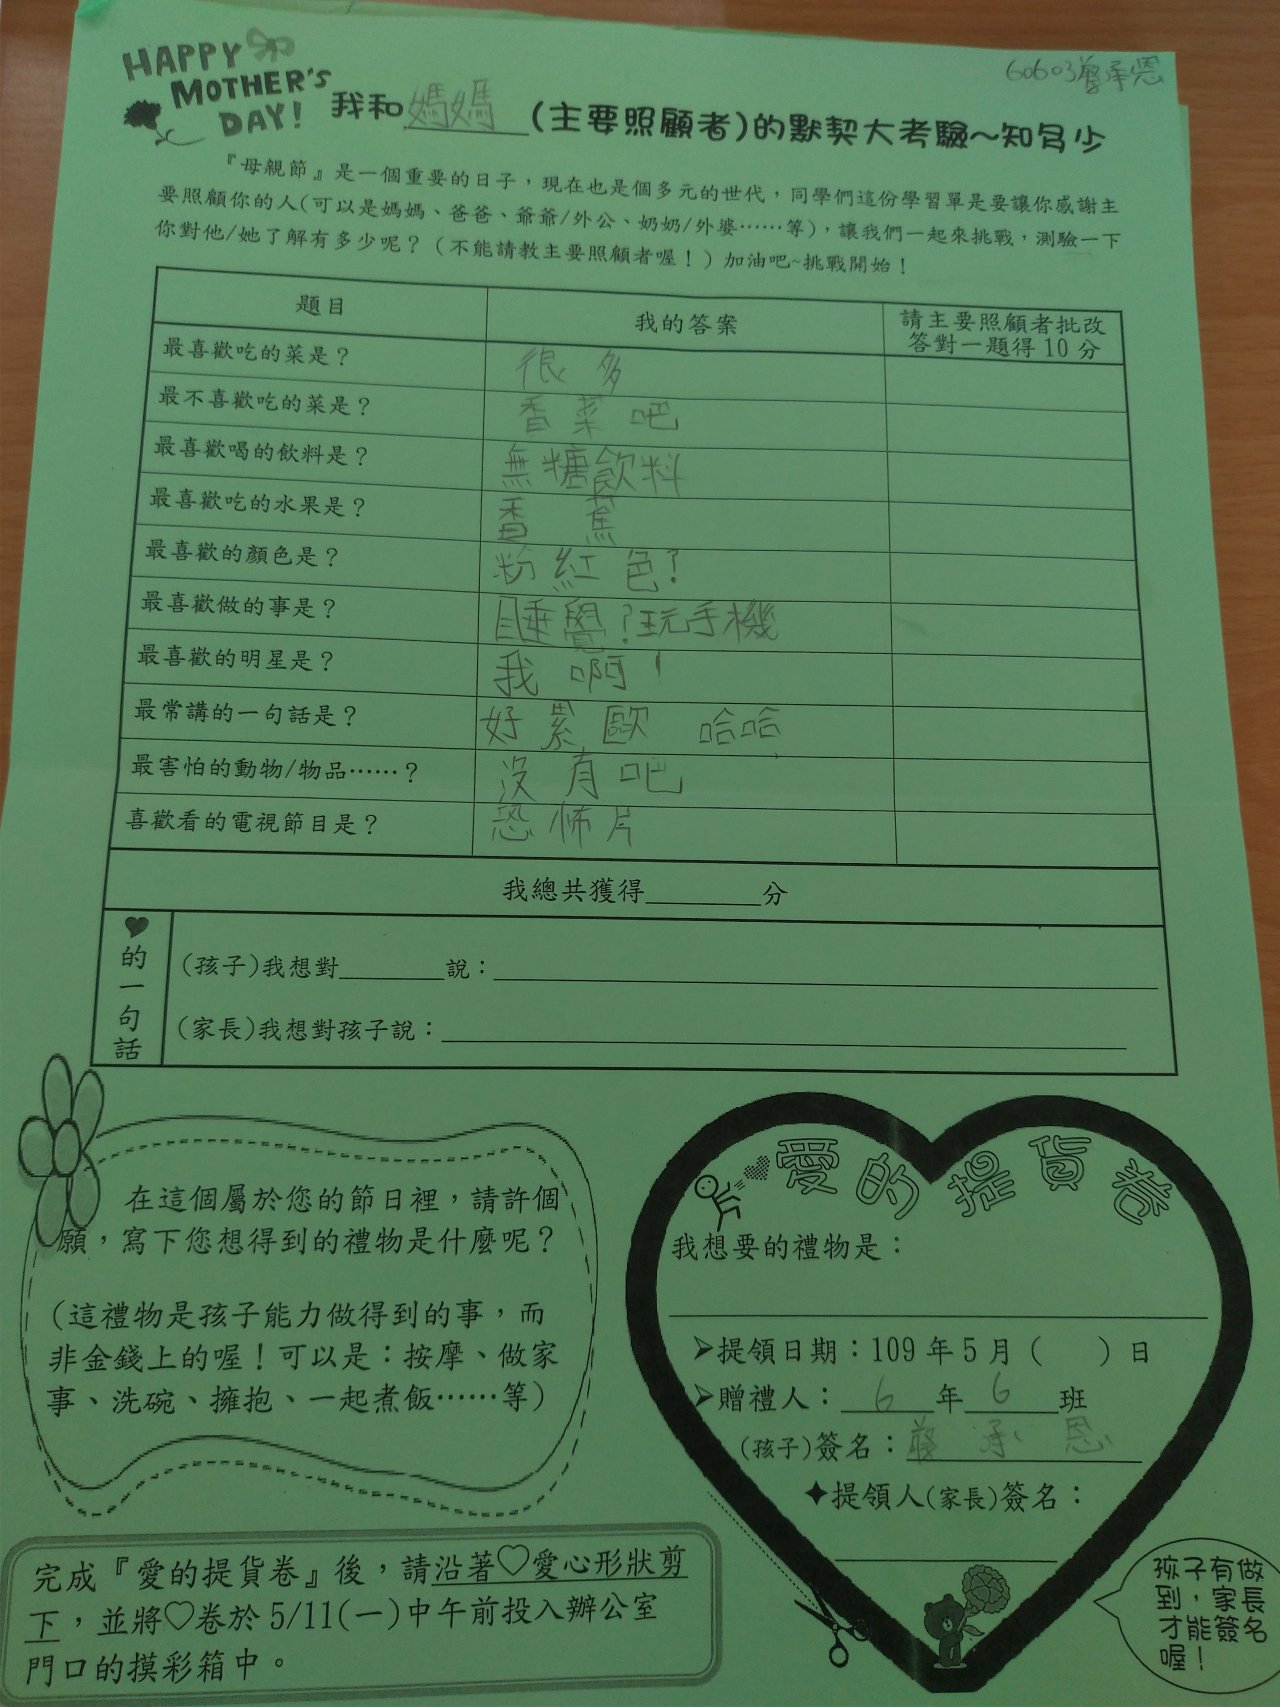 HAPPY
MOTHER'S
DAY!
60603蔡承恩
我和媽媽(主要照顧者)的默契大考驗~知多少
『母親節』是一個重要的日子，現在也是個多元的世代，同學們這份學習單是要讓你感謝主
要照顧你的人(可以是媽媽、爸爸、爺爺/外公、奶奶/外婆……等)，讓我們一起來挑戰，測驗一下
你對他/她了解有多少呢？(不能請教主要照顧者喔！)加油吧~挑戰開始！
題目 我的答案 請主要照顧者批改
答對一題得10分
最喜歡吃的菜是？ 很多
最不喜歡吃的菜是？ 香菜吧
最喜歡喝的飲料是？ 無糖飲料
最喜歡吃的水果是？ 香蕉
最喜歡的顏色是？ 粉紅色?
最喜歡做的事是？ 睡覺?玩手機
最喜歡的明星是？ 我啊!
最常講的一句話是？ 好累歐 哈哈
最害怕的動物/物品……？ 沒有吧
喜歡看的電視節目是？ 恐怖片
我總共獲得________分
♥的一句話
(孩子)我想對________說：
(家長)我想對孩子說：
在這個屬於您的節日裡，請許個
願，寫下您想得到的禮物是什麼呢？
(這禮物是孩子能力做得到的事，而
非金錢上的喔！可以是：按摩、做家
事、洗碗、擁抱、一起煮飯……等)
愛的提貨卷
我想要的禮物是：
➢提領日期：109年5月(　)日
➢贈禮人：6年6班
(孩子)簽名：蔡承恩
✦提領人(家長)簽名：
孩子有做
到，家長
才能簽名
喔！
完成『愛的提貨卷』後，請沿著♡愛心形狀剪
下，並將♡卷於5/11(一)中午前投入辦公室
門口的摸彩箱中。